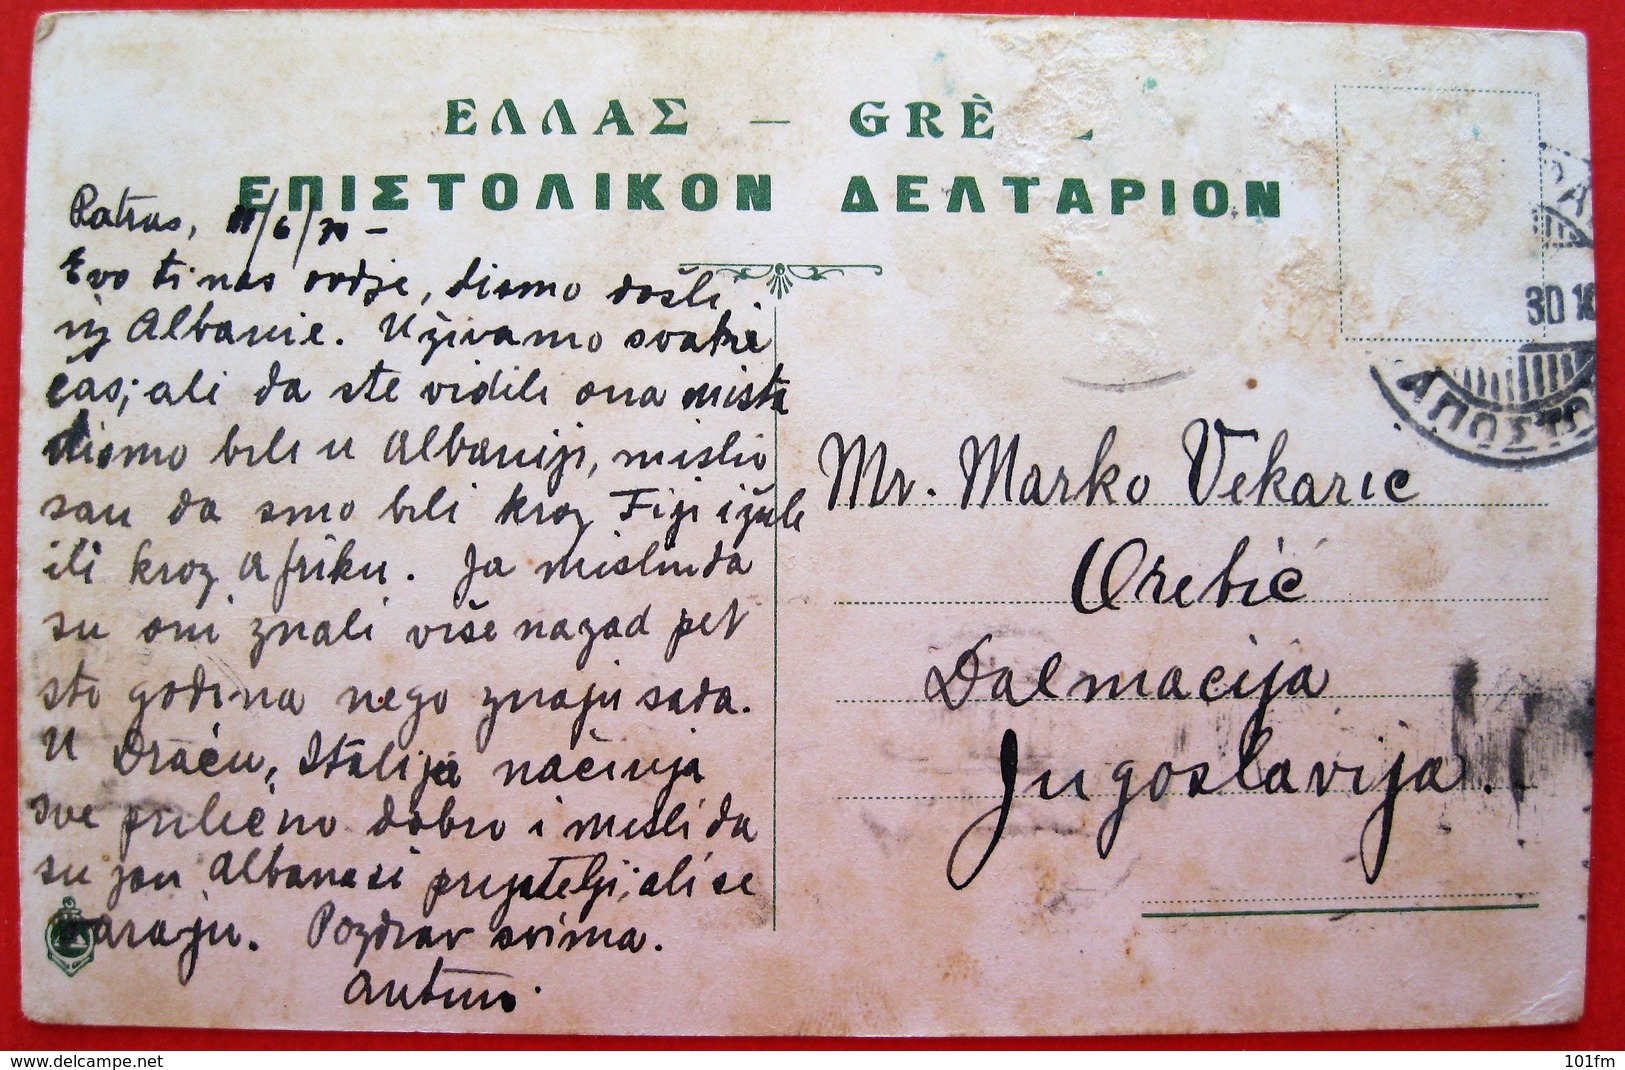 ΕΛΛΑΣ — GRÈ
ΕΠΙΣΤΟΛΙΚΟΝ ΔΕΛΤΑΡΙΟΝ
Patras, /6/30 -
Evo ti nas ovdje, dismo došli
iz Albanie. Uživamo svaki
čas; ali da ste vidili ona mista
dismo bili u Albaniji, mislio
san da smo bili kroz Fiji ižule
ili kroz Afriku. Ja mislin da
su oni znali više nazad pet
sto godina nego znaju sada.
U Draču, Italija načinja
sve prilično dobro i misli da
su jon Albanasi prijatelji; ali se
varaju. Pozdrav svima.
Antun.
Mr. Marko Vekaric
Orebić
Dalmacija
Jugoslavija.
30
ΑΠΟΣΤΟ
delcampe.net
101fm